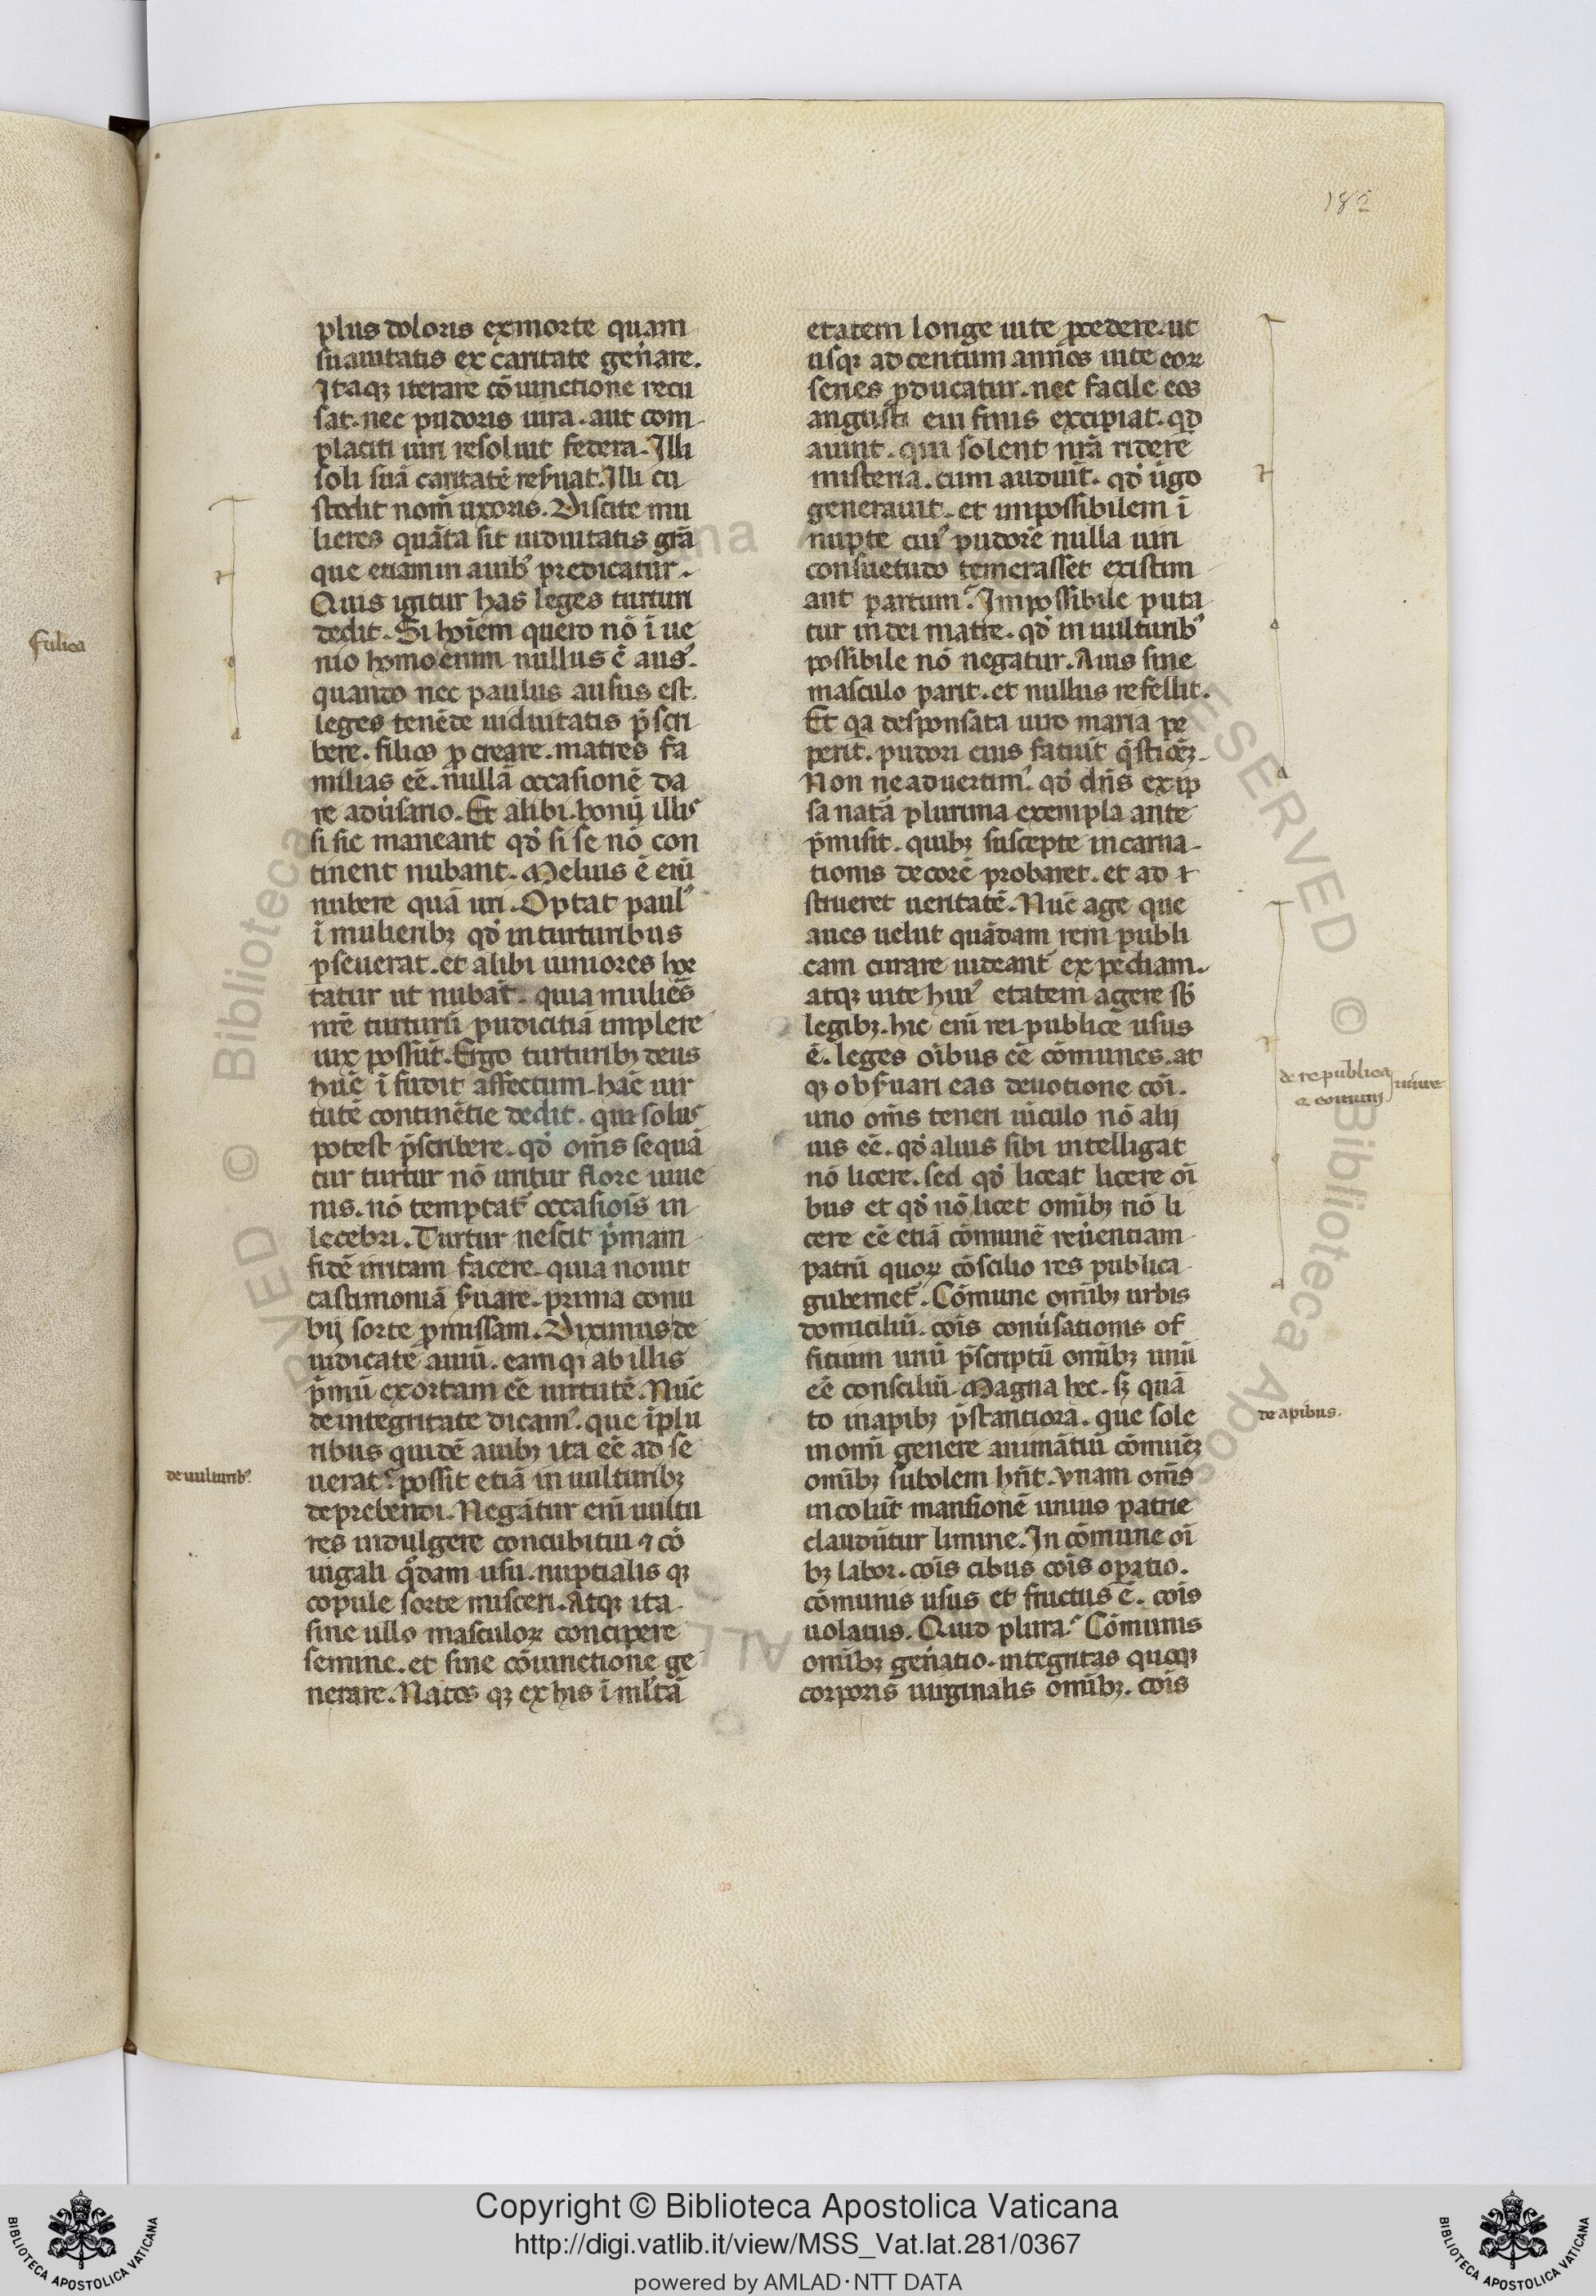 182
plus doloris ex morte quam
suauitatis ex caritate gen̄are.
Itaqꝫ iterare cōiunctione recu
sat. nec pudoris iura. aut com
placiti uiri resoluit federa. Illi
soli suā caritatē reẜuat. Illi cu
stodit nom̄ uxoris. Discite mu
lieres quāta sit uiduitatis grā
que etiam in auibꝰ predicatur.
Quis igitur has leges turturi
dedit. Si hoīem quero nō īue
nio homo enim nullus ē ausꝰ.
quando nec paulus ausus est.
leges tenēde uiduitatis p̄scri
bere. filios ꝓcreare. matres fa
milias eē. nullā occasionē da
re adūsario. Et alibi. bonū illis
si sic maneant qd̓ si se nō con
tinent nubant. Melius ē enī
nubere quā uri. Optat paulꝰ
ī mulieribꝫ qd̓ in turturibus
ꝑseuerat. et alibi iuniores hor
tatur ut nubāt. quia mulieēs
nrē turturū pudicitiā implere
uix possūt. Ergo turturibꝫ deus
hūc īfudit affectum. hāc uir
tutē continētie dedit. qui solus
potest p̄scribere. qd̓ om̄s sequā
tur turtur nō uritur flore iuue
nis. nō temptat᷑ occasiois̄ in
lecebri. Turtur nescit p̄mam
fidē irritam facere. quia nouit
castimoniā ẜuare. prima conu
bij sorte ꝓmissam. Diximus de
uidicate auiū. eamqꝫ ab illis
p̄mū exortam eē uirtutē. Nūc
de integritate dicamꝰ. que īplu
ribus quidē auibꝫ ita eē adse
uerat᷑. possit etiā in uulturibꝫ
deprehendi. Negātur enī uultu
res indulgere concubitui ⁊ cō
iugali q̊dam usu. nuptialis qꝫ
copule sorte misceri. Atqꝫ ita
sine ullo masculoꝝ concipere
semine. et sine cōiunctione ge
nerare. Natos qꝫ ex his ī ml̓tā
etatem longe uite ꝓcedere. ut
usqꝫ ad centum annos uite eoꝝ
series ꝓducatur. nec facile eos
angusti eui finis excipiat. qd̓
aiunt. qui solent nrā ridere
misteria. cum audiūt. qd̓ ūgo
generauit. et impossibilem ī
nupte cuiꝰ pudorē nulla uiri
consuetudo temerasset existim
ant partum. Impossibile puta
tur in dei matre. qd̓ in uulturibꝰ
possibile nō negatur. Auis sine
masculo parit. et nullus refellit.
Et qa desponsata uiro maria pe
perit. pudori eius faciūt q̄stiōeꝫ.
Non ne aduertimꝰ. qd̓ dn̄s ex ip
sa natā plurima exempla ante
p̄misit. quibꝫ suscepte incarna
tionis decorē probaret. et ad
strueret ueritatē. Nūc age que
aues uelut quādam rem publi
cam curare uideant᷑ expediam.
atqꝫ uite huiꝰ etatem agere sb̓
legibꝫ. hic enī rei publice usus
ē. leges oībus eē cōmunes. at
qꝫ obẜuari eas deuotione coī.
uno om̄s teneri uīculo nō alij
ius eē. qd̓ alius sibi intelligat
nō licere. sed qd̓ liceat licere oī
bus et qd̓ nō licet omībꝫ nō li
cere eē etiā cōmunē reūentiam
patrū quoꝝ cōscilio res publica
gubernet᷑. Cōmune omībꝫ urbis
domiciliū. cois̄ conūsationis of
ficium unū p̄scriptū omībꝫ unū
eē consciliū. Magna hec. sꝫ quā
to in apibꝫ p̄stantiora. que sole
in omī genere animātiū cōmuēꝫ
omībꝫ subolem hn̄t. Vnam om̄s
incolūt mansionē unius patrie
claudūtur limine. In cōmune oī
bꝫ labor. cois̄ cibus cois̄ oꝑatio.
cōmunis usus et fructus ē. cois̄
uolatus. Quid plura. Cōmunis
omībꝫ gen̄atio. integritas quoqꝫ
corporis uirginalis omībꝫ. cois̄
fulica
de uulturibꝰ
de re publica
⁊ comuni
uiuere
de apibus.
Copyright © Biblioteca Apostolica Vaticana
http://digi.vatlib.it/view/MSS_Vat.lat.281/0367
powered by AMLAD·NTT DATA
BIBLIOTECA APOSTOLICA VATICANA
BIBLIOTECA APOSTOLICA VATICANA